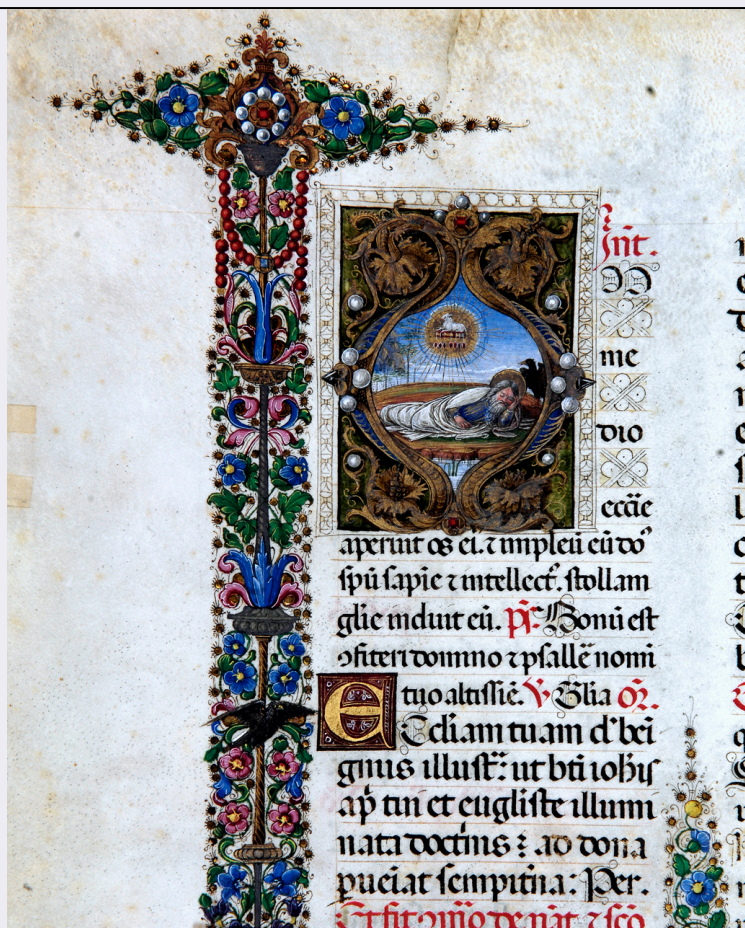 Int̃.
IN
me
dio
ecc̃ie
aperuit os ei. ⁊ impleũ eũ do᷒
spũ sapie ⁊ intellect᷒. stollam
glie induit eũ. p̃s. Bonũ est
ꝯfiteri domino ⁊ psallẽ nomĩ
tuo altissiẽ. ℣ Glia or̃.
Ecclẽiam tuam dñe bei
gnus illust᷒: ut bt̃i ioh̃is
ap̃ tui et euãgliste illumi
nata doctinis : ad dona
ꝑueiat sempit̃na: Per.
Et fit ꝯmẽo de nat̃. ⁊ sc̃o